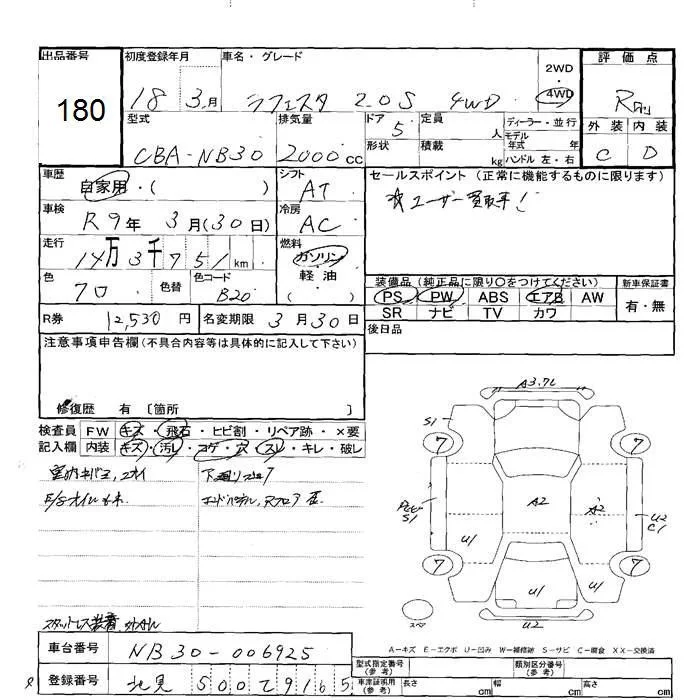 出品番号
180
初度登録年月
18 3月
車名・グレード
ラフェスタ 2.0S 4WD
2WD
・
4WD
評価点
R
外装 内装
C D
型式
CBA-NB30
排気量
2000cc
ドア
5
形状
定員
人
積載
kg
ディーラー・並行
モデル
年式 年
ハンドル 左・右
車歴
自家用・( )
車検
R9年 3月(30日)
走行
14万3千751km
色
クロ
色替
色コード
B20
シフト
AT
冷房
AC
燃料
ガソリン
軽油
( )
セールスポイント(正常に機能するものに限ります)
☆ユーザー買取車!
装備品(純正品に限り○をつけてください)
PS PW ABS エアB AW
SR ナビ TV カワ
新車保証書
有・無
後日品
R券 12,530円
名変期限 3月30日
注意事項申告欄(不具合内容等は具体的に記入して下さい)
修復歴 有 〔箇所 〕
検査員 FW キズ・飛石・ヒビ割・リペア跡・×要
記入欄 内装 キズ・汚レ・コゲ・穴・スレ・キレ・破レ
下廻り
エンドパネル, Rフロア
スタットレス装着
A3.7L
S1
7
7
S1
A2
A2
U2
C1
U1
7
U1
U1
7
U2
スペ
A-キズ E-エクボ U-凹み W-補修跡 S-サビ C-腐食 XX-交換済
車台番号
NB30-006925
登録番号
北見 500 7 9165
型式指定番号
(参考)
類別区分番号
(参考)
車庫証明用
(参考)
長さ cm
幅 cm
高さ cm